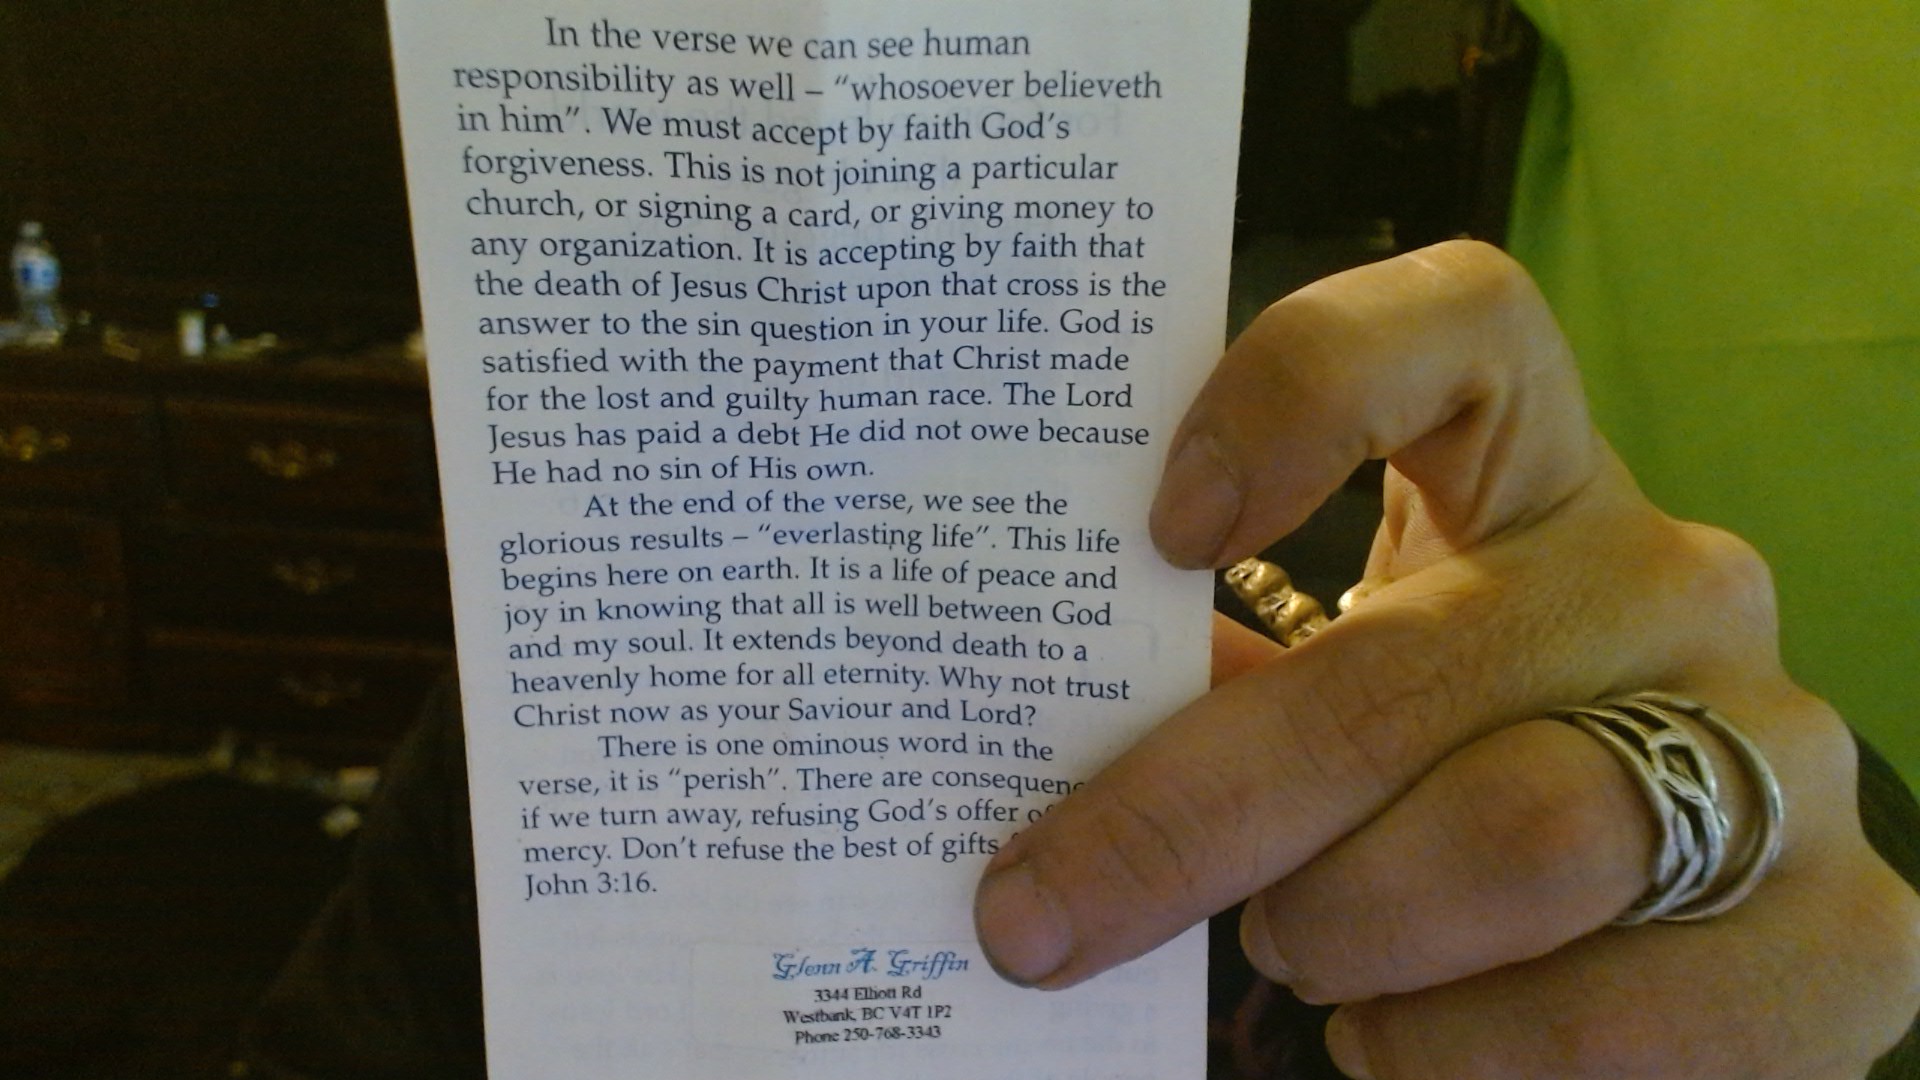 In the verse we can see human
responsibility as well – “whosoever believeth
in him”. We must accept by faith God’s
forgiveness. This is not joining a particular
church, or signing a card, or giving money to
any organization. It is accepting by faith that
the death of Jesus Christ upon that cross is the
answer to the sin question in your life. God is
satisfied with the payment that Christ made
for the lost and guilty human race. The Lord
Jesus has paid a debt He did not owe because
He had no sin of His own.
At the end of the verse, we see the
glorious results – “everlasting life”. This life
begins here on earth. It is a life of peace and
joy in knowing that all is well between God
and my soul. It extends beyond death to a
heavenly home for all eternity. Why not trust
Christ now as your Saviour and Lord?
There is one ominous word in the
verse, it is “perish”. There are
if we turn away, refusing God’s offer
mercy. Don’t refuse the best of gifts
John 3:16.
Glenn A. Griffin
3344 Elliott Rd
Westbank, BC V4T 1P2
Phone 250-768-3343